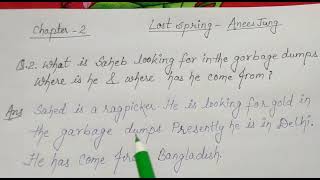 Chapter-2 Lost Spring - Anees Jung
Q.2. What is Saheb looking for in the garbage dumps
Where is he & where has he come from?
Ans Sahed is a ragpicker He is looking for gold in
the garbage dumps Presently he is in Delhi.
He has come from Bangladesh.